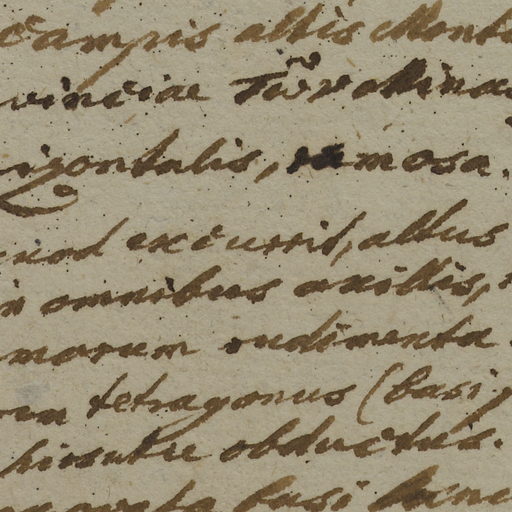 campis altis Mont
vinciae
izontalis, ramosa.
excurrit, altus
in omnibus axillis,
marum rudimenta
tetragonus (basi
hirsutie obductus.
basi